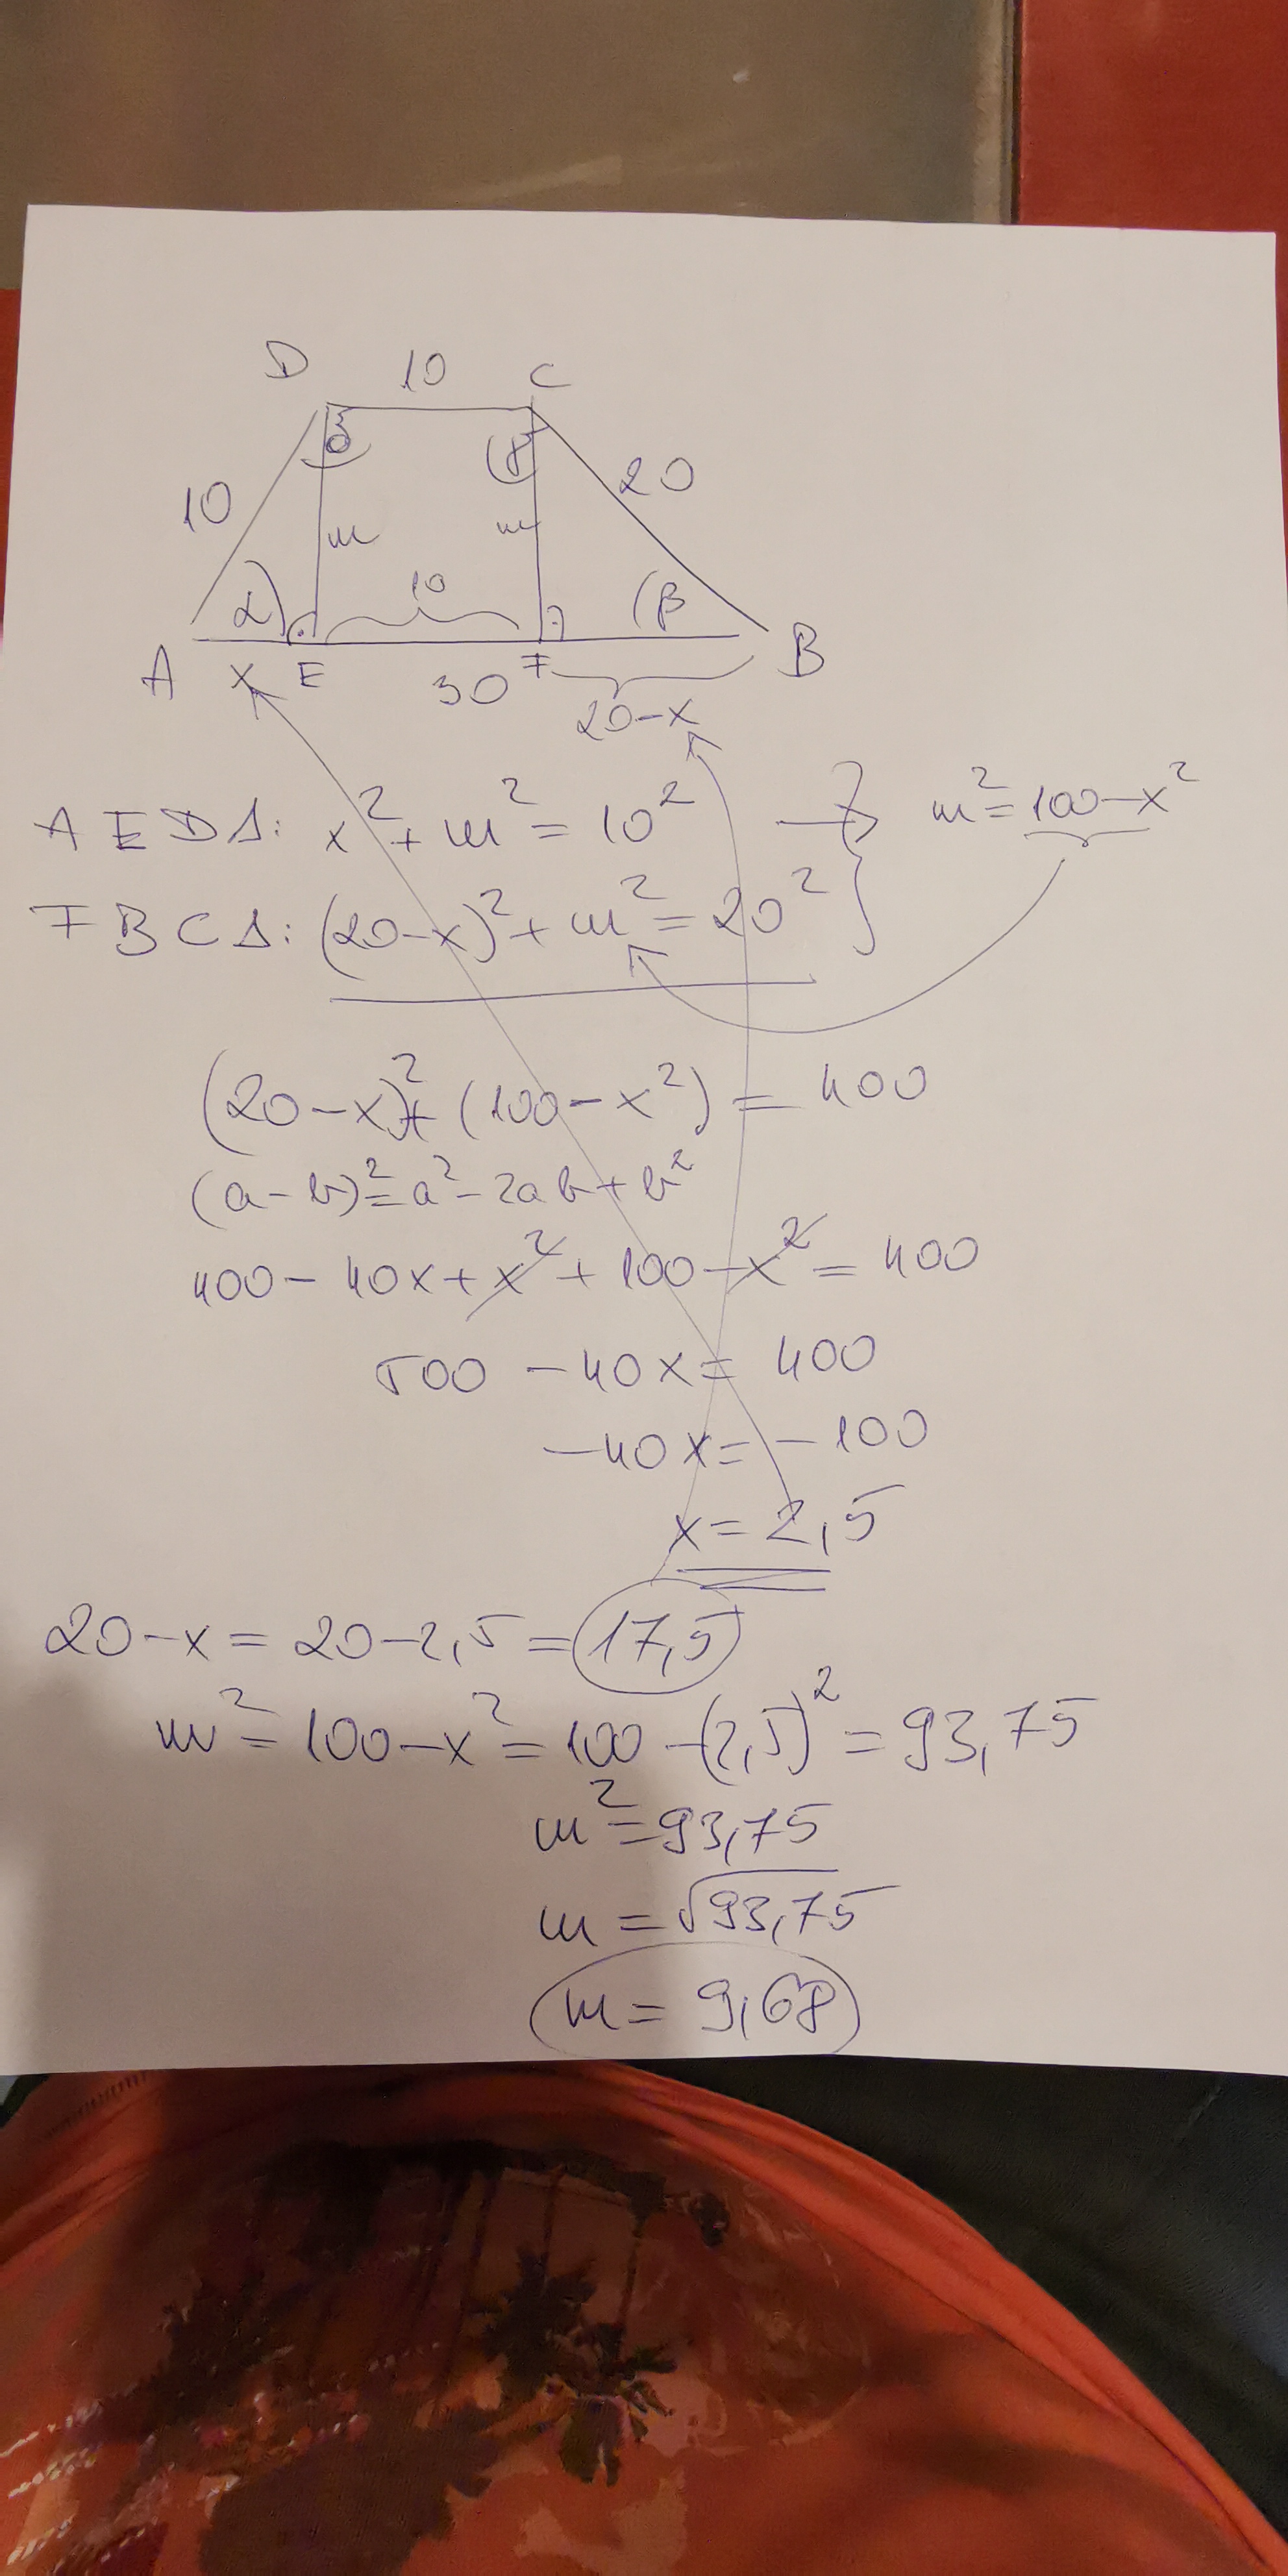 D 10 C
10 m m 20
δ γ
α 10 β
A x E 30 F B
20-x
AEDΔ: x²+m²=10² → m²=100-x²
FBCΔ: (20-x)²+m²=20²
(20-x)²+(100-x²)=400
(a-b)²=a²-2ab+b²
400-40x+x²+100-x²=400
500-40x=400
-40x=-100
x=2,5
20-x=20-2,5=17,5
m²=100-x²=100-(2,5)²=93,75
m²=93,75
m=√93,75
m=9,68